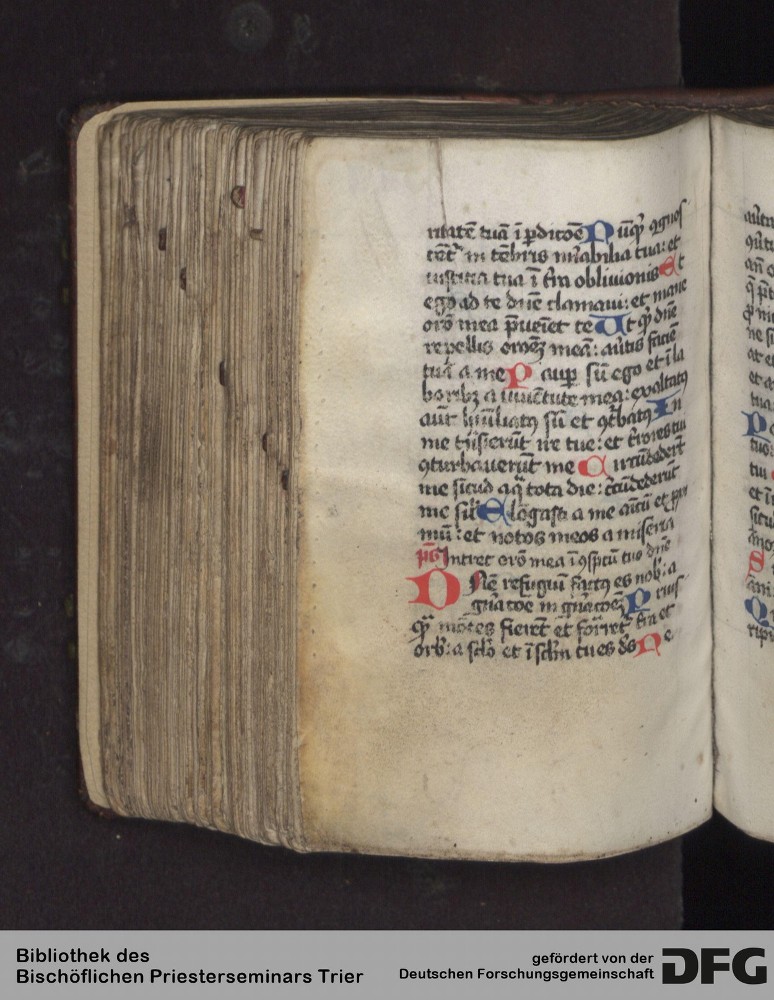 ritatē tuā ī ꝑditōe Nūqͥꝫ ꝯgnos
cēt in tēbris mͥabilia tua: et
iusticia tua ī tͬra obliuionis Et
ego ad te dn̄e clamaui: et mane
orō mea p̄ueīet te Ut qͥd dn̄e
repellis oroēꝫ meā: aūtis faciē
tuā a me Paupꝰ sū ego et ī la
boribꝫ a iuuētute mea: exaltatꝰ
aūt hūīliatꝰ sū et ꝯt̄batꝰ In
me trāsierūt ire tue: et t̄rores tui
ꝯturbauerūt me Circūdederūt
me sicud aqͣ tota die: cͥcūdederūt
me sil̄ Elōgasti a me amicū et ꝓxi
mū: et notos meos a miseria
p̄s Intret orō mea ī ꝯspctū tuo dn̄e
Dn̄e refugiū factꝰ es nob: a
gn̄acōe in gn̄acōeꝫ Prius
qͣ mōtes fierēt et form̄et t̄ra et
orb: a sclo et ī sclm tu es dꝰs Ne
Bibliothek des
Bischöflichen Priesterseminars Trier
gefördert von der
Deutschen Forschungsgemeinschaft
DFG